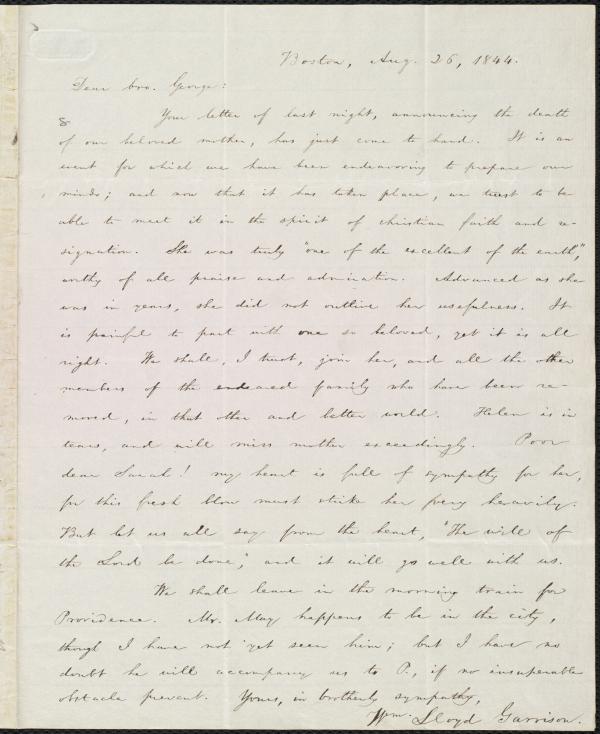 Boston, Aug. 26, 1844.
Dear bro. George:
Your letter of last night, announcing the death
of our beloved mother, has just come to hand. It is an
event for which we have been endeavoring to prepare our
minds; and now that it has taken place, we trust to be
able to meet it in the spirit of christian faith and re-
signation. She was truly "one of the excellent of the earth,"
worthy of all praise and admiration. Advanced as she
was in years, she did not outlive her usefulness. It
is painful to part with one so beloved, yet it is all
right. We shall, I trust, join her, and all the other
members of the endeared family who have been re-
moved, in that other and better world. Helen is in
tears, and will miss mother exceedingly. Poor
dear Sarah! my heart is full of sympathy for her,
for this fresh blow must strike her very heavily.
But let us all say from the heart, "The will of
the Lord be done," and it will go well with us.
We shall leave in the morning train for
Providence. Mr. May happens to be in the city,
though I have not yet seen him; but I have no
doubt he will accompany us to P., if no insuperable
obstacle prevent. Yours, in brotherly sympathy,
Wm. Lloyd Garrison.